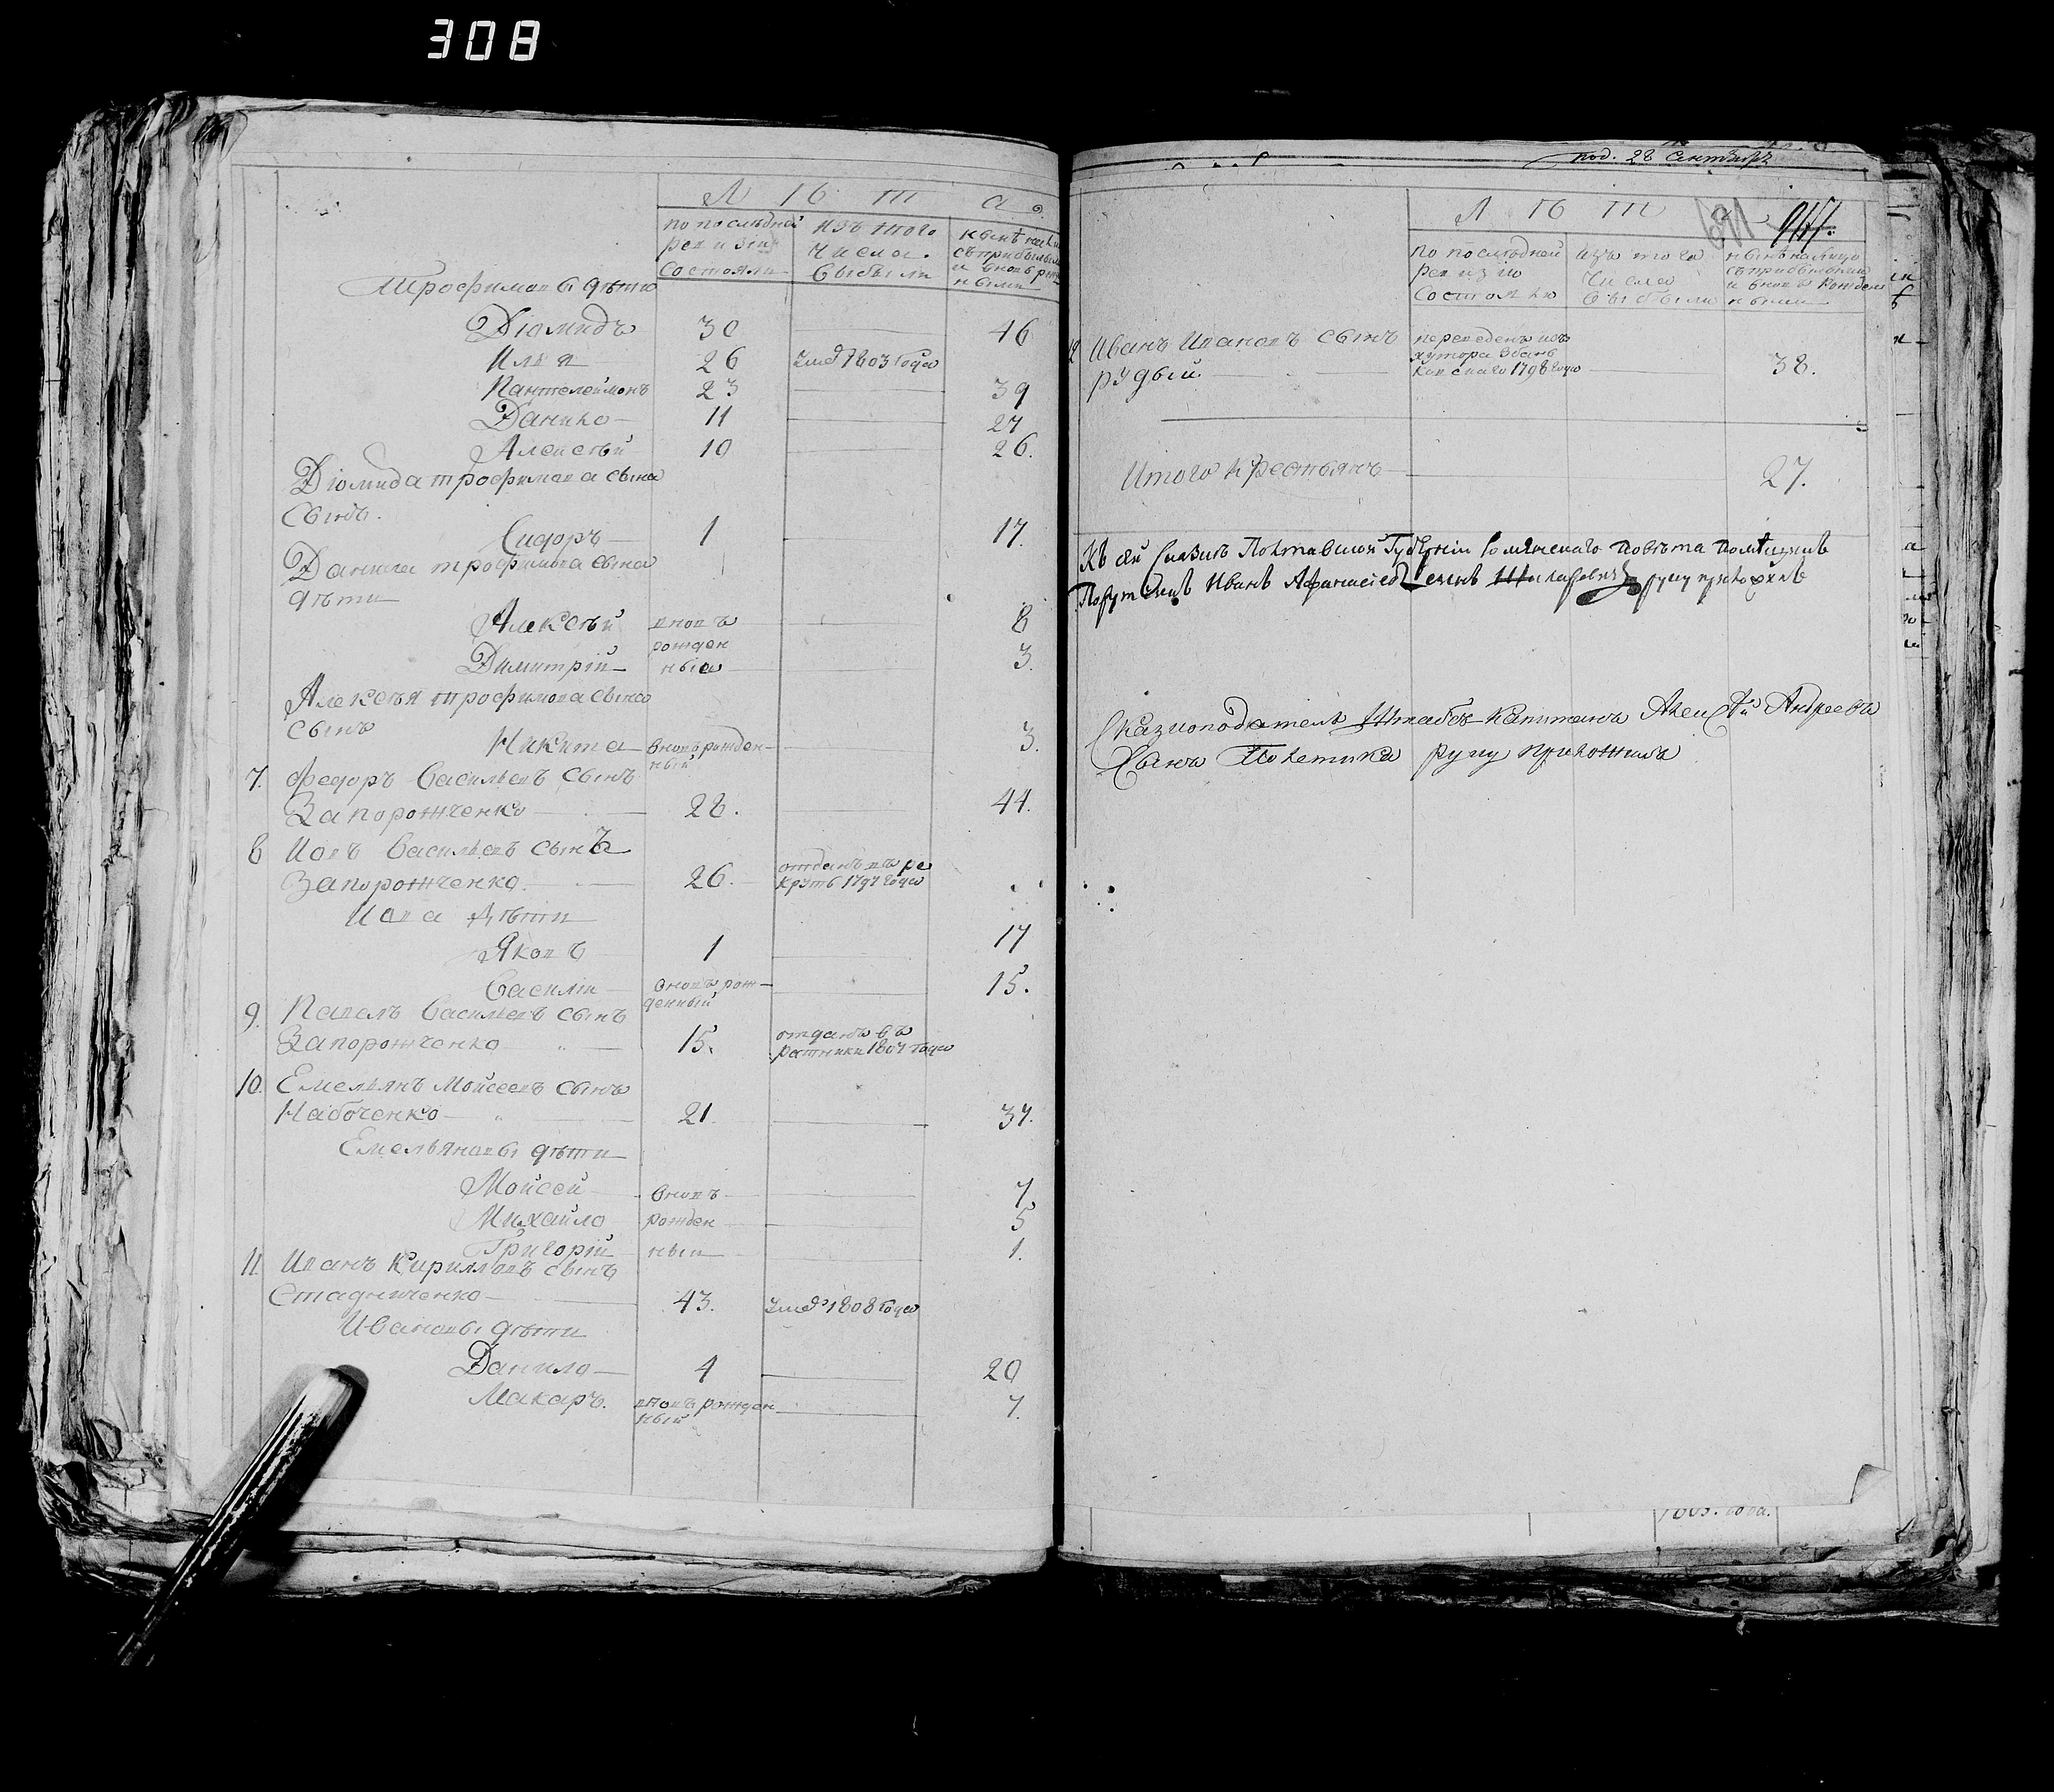 308
Лѣта
по послѣдней ревизіи состояли
изъ того числа выбыли
нынѣ налицо съ прибылыми и вновь рожденными
Трофимовы дѣти
Діомидъ 30 46
Илья 26 умеръ 1803 года
Пантелеймонъ 23 39
Данило 11 27
Алексѣй 10 26.
Діомида трофимова сына
сынъ.
Сидоръ 1 17.
Данила трофимова сына
дѣти
Алексѣй вновь 8
рожден
Димитрій ныя 3.
Алексѣя трофимова сына
сынъ
Никита вновь рожден- 3.
ный
7. Федоръ Васильевъ сынъ
Запорожченко 28. 44.
8 Іовъ Васильевъ сынъ
отданъ въ ре
Запорожченко. 26. круты 1797 года
Іова дѣти
Яковъ 1 17
Василій вновь рож- 15.
денный
9. Павелъ Васильевъ сынъ
отданъ въ
Запорожченко 15. ратники 1807 года
10. Емельянъ Мойсеевъ сынъ
Набоченко 21. 37.
Емельяновы дѣти
Мойсей вновь 7
Михайло рожден 5
Григорій ныи 1.
11. Иванъ Кирилловъ сынъ
Стадниченко 43. умеръ 1808 года
Ивановы дѣти
Данило 4 20
Макаръ. вновь рожден 7.
ный
под. 28 Сентября
Лѣта
по послѣдней ревизіи состояли
изъ того числа выбыли
нынѣ налицо съ прибылыми и вновь рожденными
12 Иванъ Ивановъ сынъ переведенъ изъ
хутора
рудый. 1798 года 38.
Итого крестьянъ 27.
Къ сей сказкѣ Полтавской Губерніи Роменскаго повѣта помѣщикъ
Иванъ Афанасіевъ сынъ руку приложилъ
Сказкоподатель Штабсъ-капитанъ Алексѣй Андреевъ
Сынъ Полетика руку приложилъ